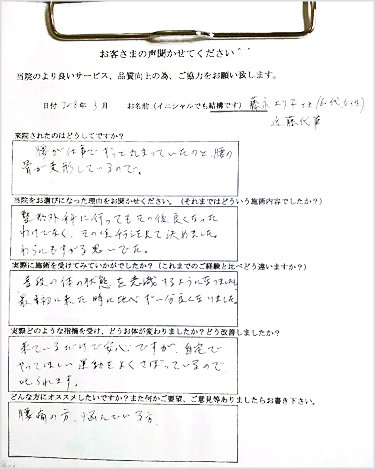 お客さまの声聞かせてください^^
当院のより良いサービス、品質向上の為、ご協力をお願い致します。
日付 2018年 3月 お名前(イニシャルでも結構です) 藤 より子さま(60代女性)
近藤代筆
来院されたのはどうしてですか?
腰が仕事でずっと丸まっていたのと、腰の
骨が変形しているので。
当院をお選びになった理由をお聞かせください。(それまではどういう施術内容でしたか?)
整形外科に行ってもその後良くなった
わけでなく、その後 を見て決めました。
わらにもすがる思いでした。
実際に施術を受けてみていかがでしたか?(これまでのご経験と比べどう違いますか?)
普段の体の状態を意識するようになりました
最初に来た時に比べだいぶ良くなりました
実際どのような指摘を受け、どうお体が変わりましたか?どう改善しましたか?
来ているだけで安心ですが、自宅で
やってほしい運動をよくさぼっているので
叱られます。
どんな方にオススメしたいですか?また何かご要望、ご意見等ありましたらお書き下さい。
腰痛の方、悩んでいる方